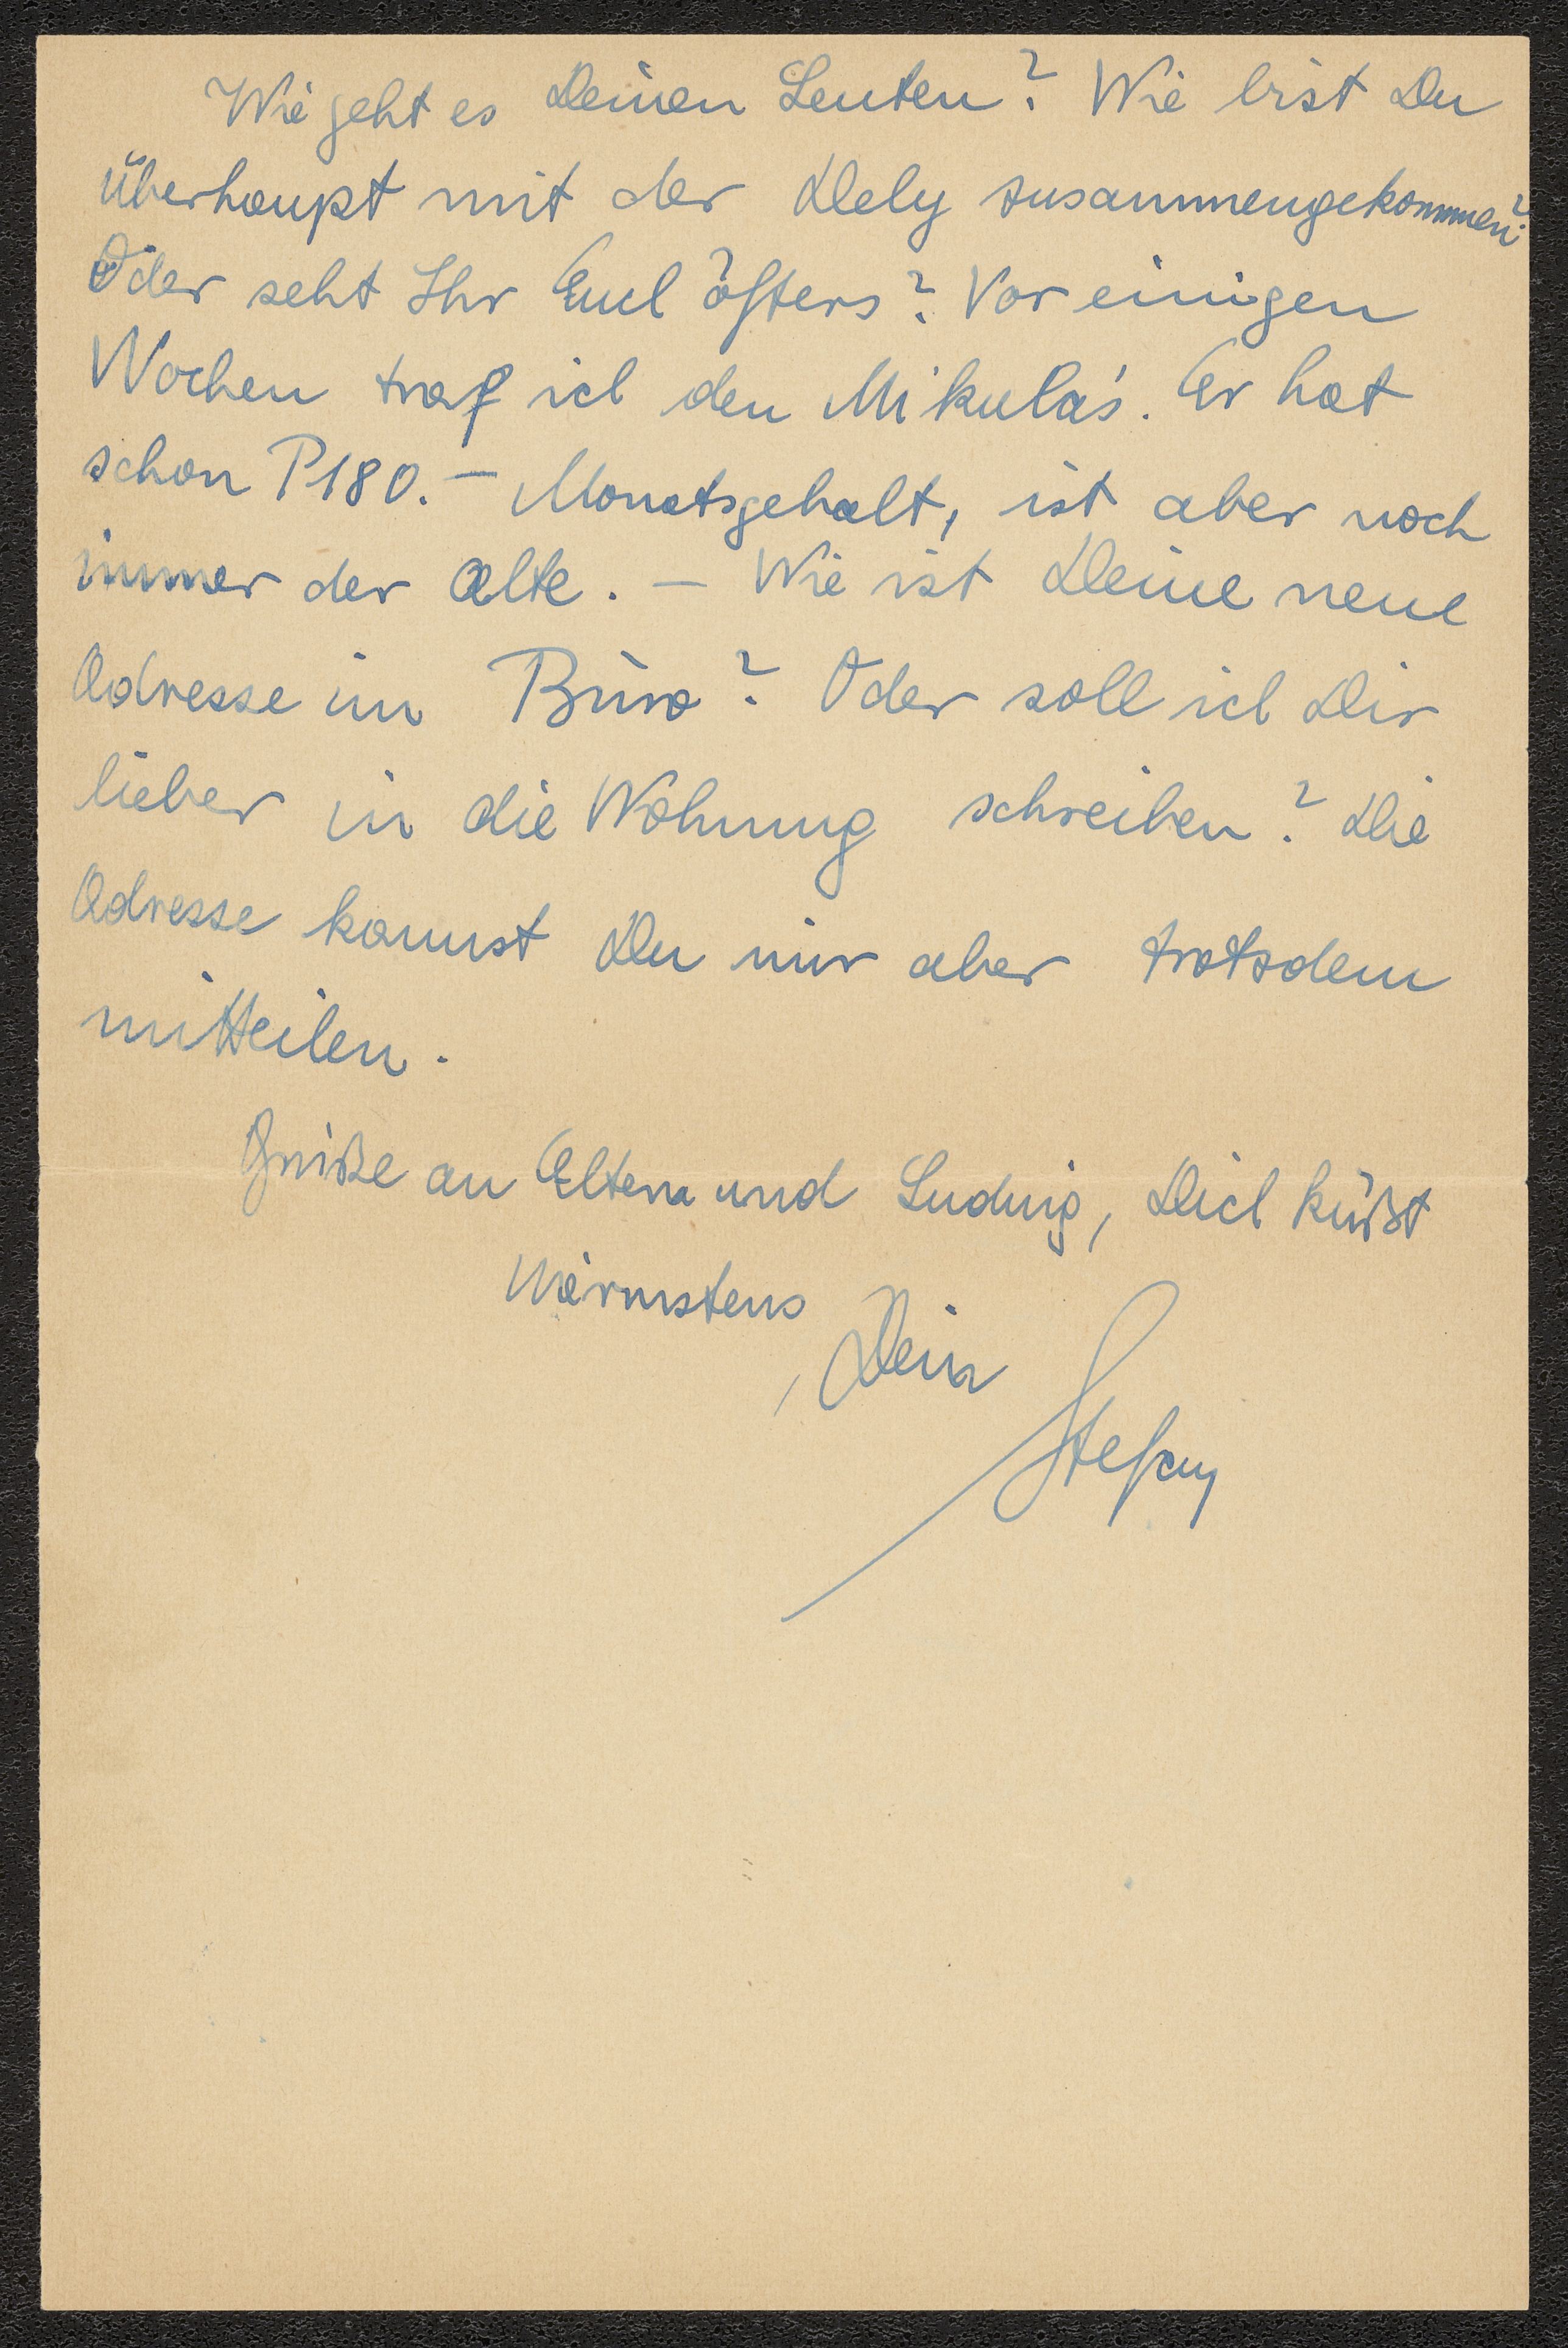 Wie geht es Deinen Leuten? Wie bist Du
überhaupt mit der Dely zusammengekommen?
Oder seht Ihr Euch öfters? Vor einigen
Wochen traf ich den Mikulás. Er hat
schon P180.- Monatsgehalt, ist aber noch
immer der alte. - Wie ist Deine neue
Adresse im Büro? Oder soll ich Dir
lieber in die Wohnung schreiben? Die
Adresse kannst Du mir aber trotzdem
mitteilen.
Grüße an Eltern und Ludwig, Dich küßt
wärmstens
, Dein
Stefan